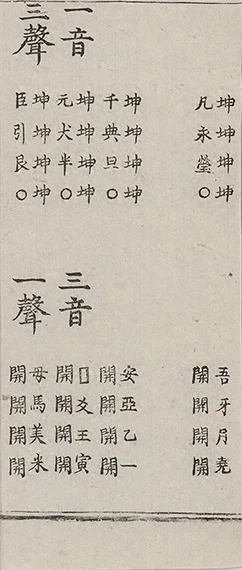 一音
三聲
坤坤坤坤
凡永瑩○
坤坤坤坤
千典旦○
坤坤坤坤
元犬半○
坤坤坤坤
臣引艮○
三音
一聲
吾牙月堯
開開開開
安亞乙一
開開開開
□爻王寅
開開開開
母馬美米
開開開開